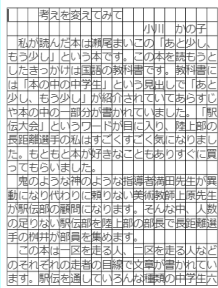 考えを変えてみて
小川 かの子
私が読んだ本は瀬尾まいこの「あと少し、
もう少し」という本です。この本を読もうと
したきっかけは国語の教科書です。教科書に
は「本の中の中学生」という見出しで「あと
少し、もう少し」が紹介されていてあらすじ
や本の中の一部分が書かれていました。「駅
伝大会」というワードが目に入り、陸上部の
長距離選手の私はすごくすごく気になりまし
た。もともと本が好きなこともありすぐに買
ってもらいました。
鬼のような神のような指導者満田先生が異
動になり代わりに頼りない美術教師上原先生
が駅伝部の顧問になります。そんな中、人数
の足りない駅伝部を陸上部の部長で長距離選
手の桝井が部員を集めます。
この本は一区を走る人、二区を走る人など
のそれぞれの走者の目線で文章が書かれてい
ます。駅伝を通していろんな種類の中学生六